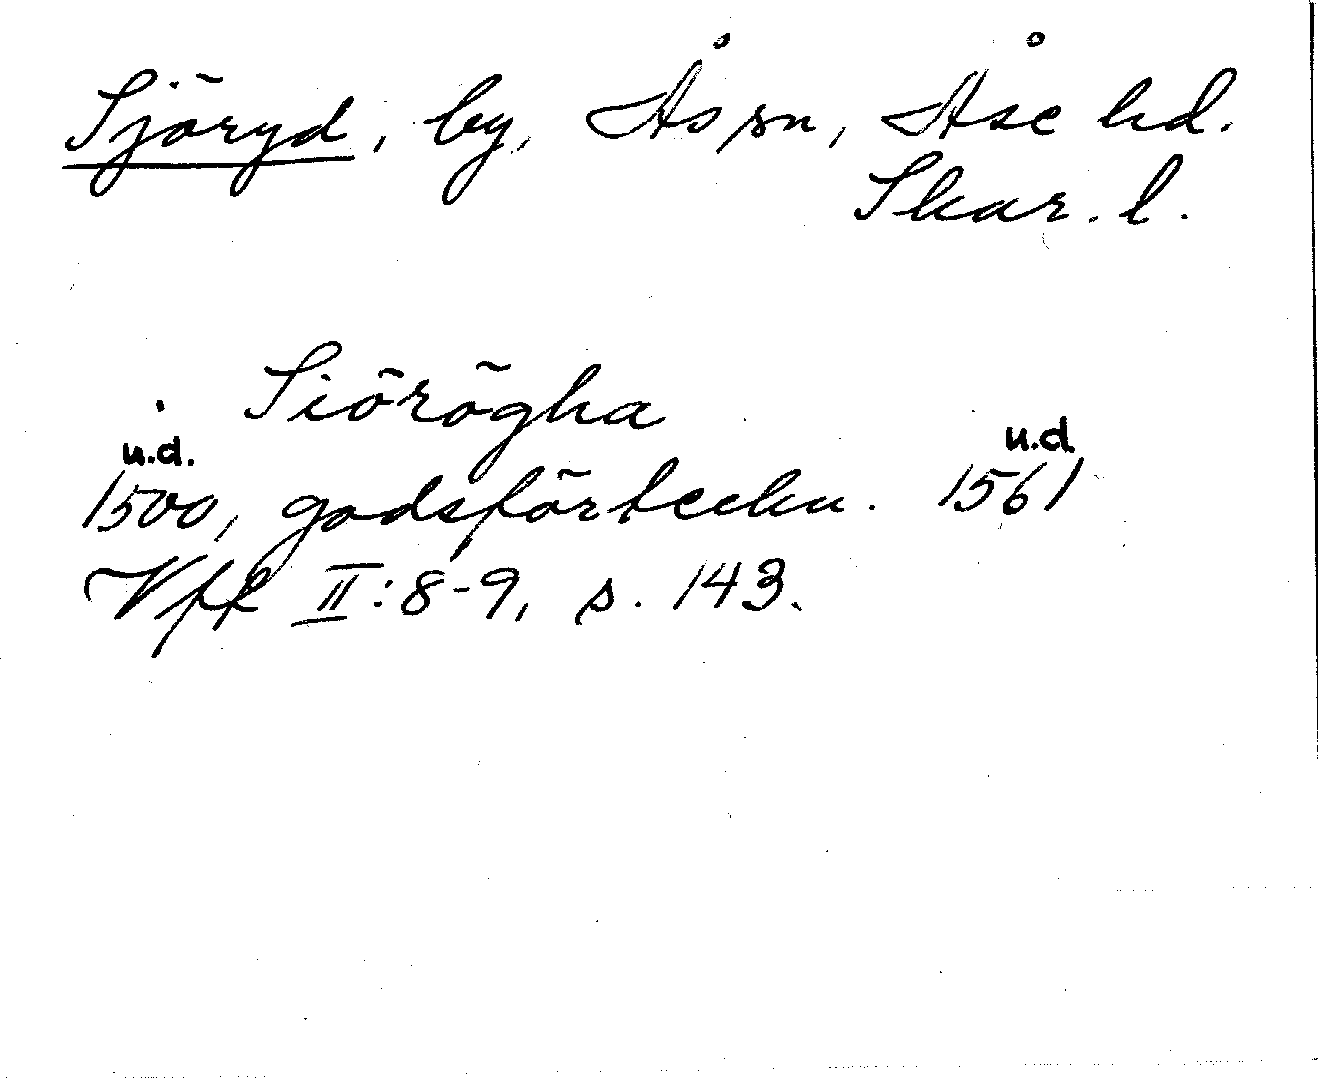 Sjöryd, by, Ås sn, Åse hd.
Skar. l.
Siörögha
u.d. u.d.
1500, godsförteckn. 1561
Vfk II:8-9, s. 143.